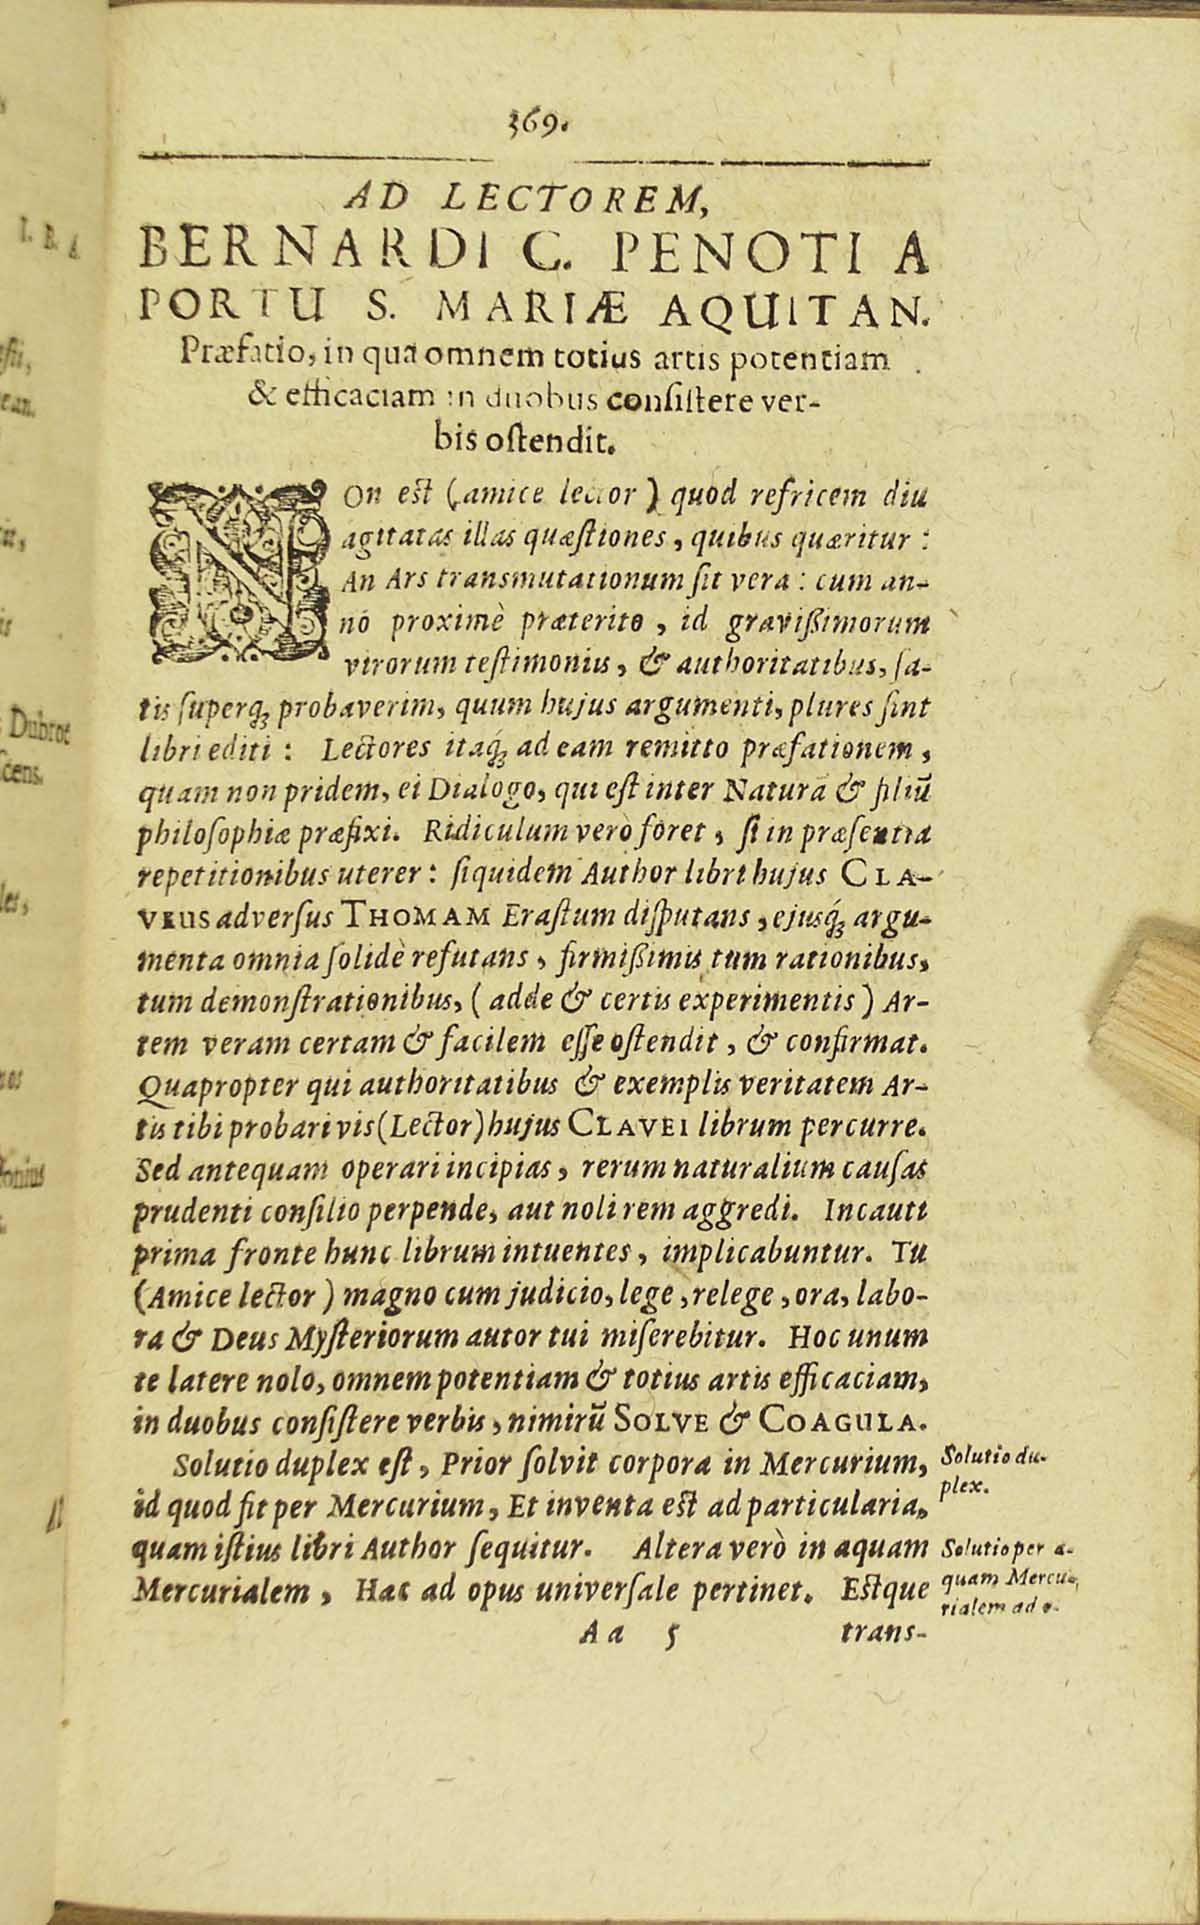 369.
AD LECTOREM,
BERNARDI C. PENOTI A
PORTU S. MARIÆ AQUITAN.
Præfatio, in qua omnem totius artis potentiam
& efficaciam in duobus consistere ver-
bis ostendit.
NOn est (amice lector) quod refricem diu
agitatas illas quæstiones, quibus quæritur:
An Ars transmutationum sit vera: cum an-
nó proximè præterito, id gravißimorum
virorum testimoniis, & authoritatibus, sa-
tis superq́ꝫ probaverim, quum hujus argumenti, plures sint
libri editi: Lectores itaq́ꝫ ad eam remitto præfationem,
quam non pridem, ei Dialogo, qui est inter Naturã & filiũ
philosophiæ præfixi. Ridiculum verò foret, si in præsentia
repetitionibus uterer: siquidem Author libri hujus CLA-
VEUS adversus THOMAM Erastum disputans, ejusq́ꝫ argu-
menta omnia solidè refutans, firmißimis tum rationibus,
tum demonstrationibus, (adde & certis experimentis) Ar-
tem veram certam & facilem esse ostendit, & confirmat.
Quapropter qui authoritatibus & exemplis veritatem Ar-
tis tibi probari vis (Lector) hujus CLAVEI librum percurre.
Sed antequam operari incipias, rerum naturalium causas
prudenti consilio perpende, aut noli rem aggredi. Incauti
prima fronte hunc librum intuentes, implicabuntur. Tu
(Amice lector) magno cum judicio, lege, relege, ora, labo-
ra & Deus Mysteriorum autor tui miserebitur. Hoc unum
te latere nolo, omnem potentiam & totius artis efficaciam,
in duobus consistere verbis, nimirũ SOLVE & COAGULA.
Solutio duplex est, Prior solvit corpora in Mercurium,
id quod fit per Mercurium, Et inventa est ad particularia,
quam istius libri Author sequitur. Altera verò in aquam
Mercurialem, Hac ad opus universale pertinet. Estque
Aa 5 trans-
Solutio du-
plex.
Solutio per a-
quam Mercu-
rialem ad o-